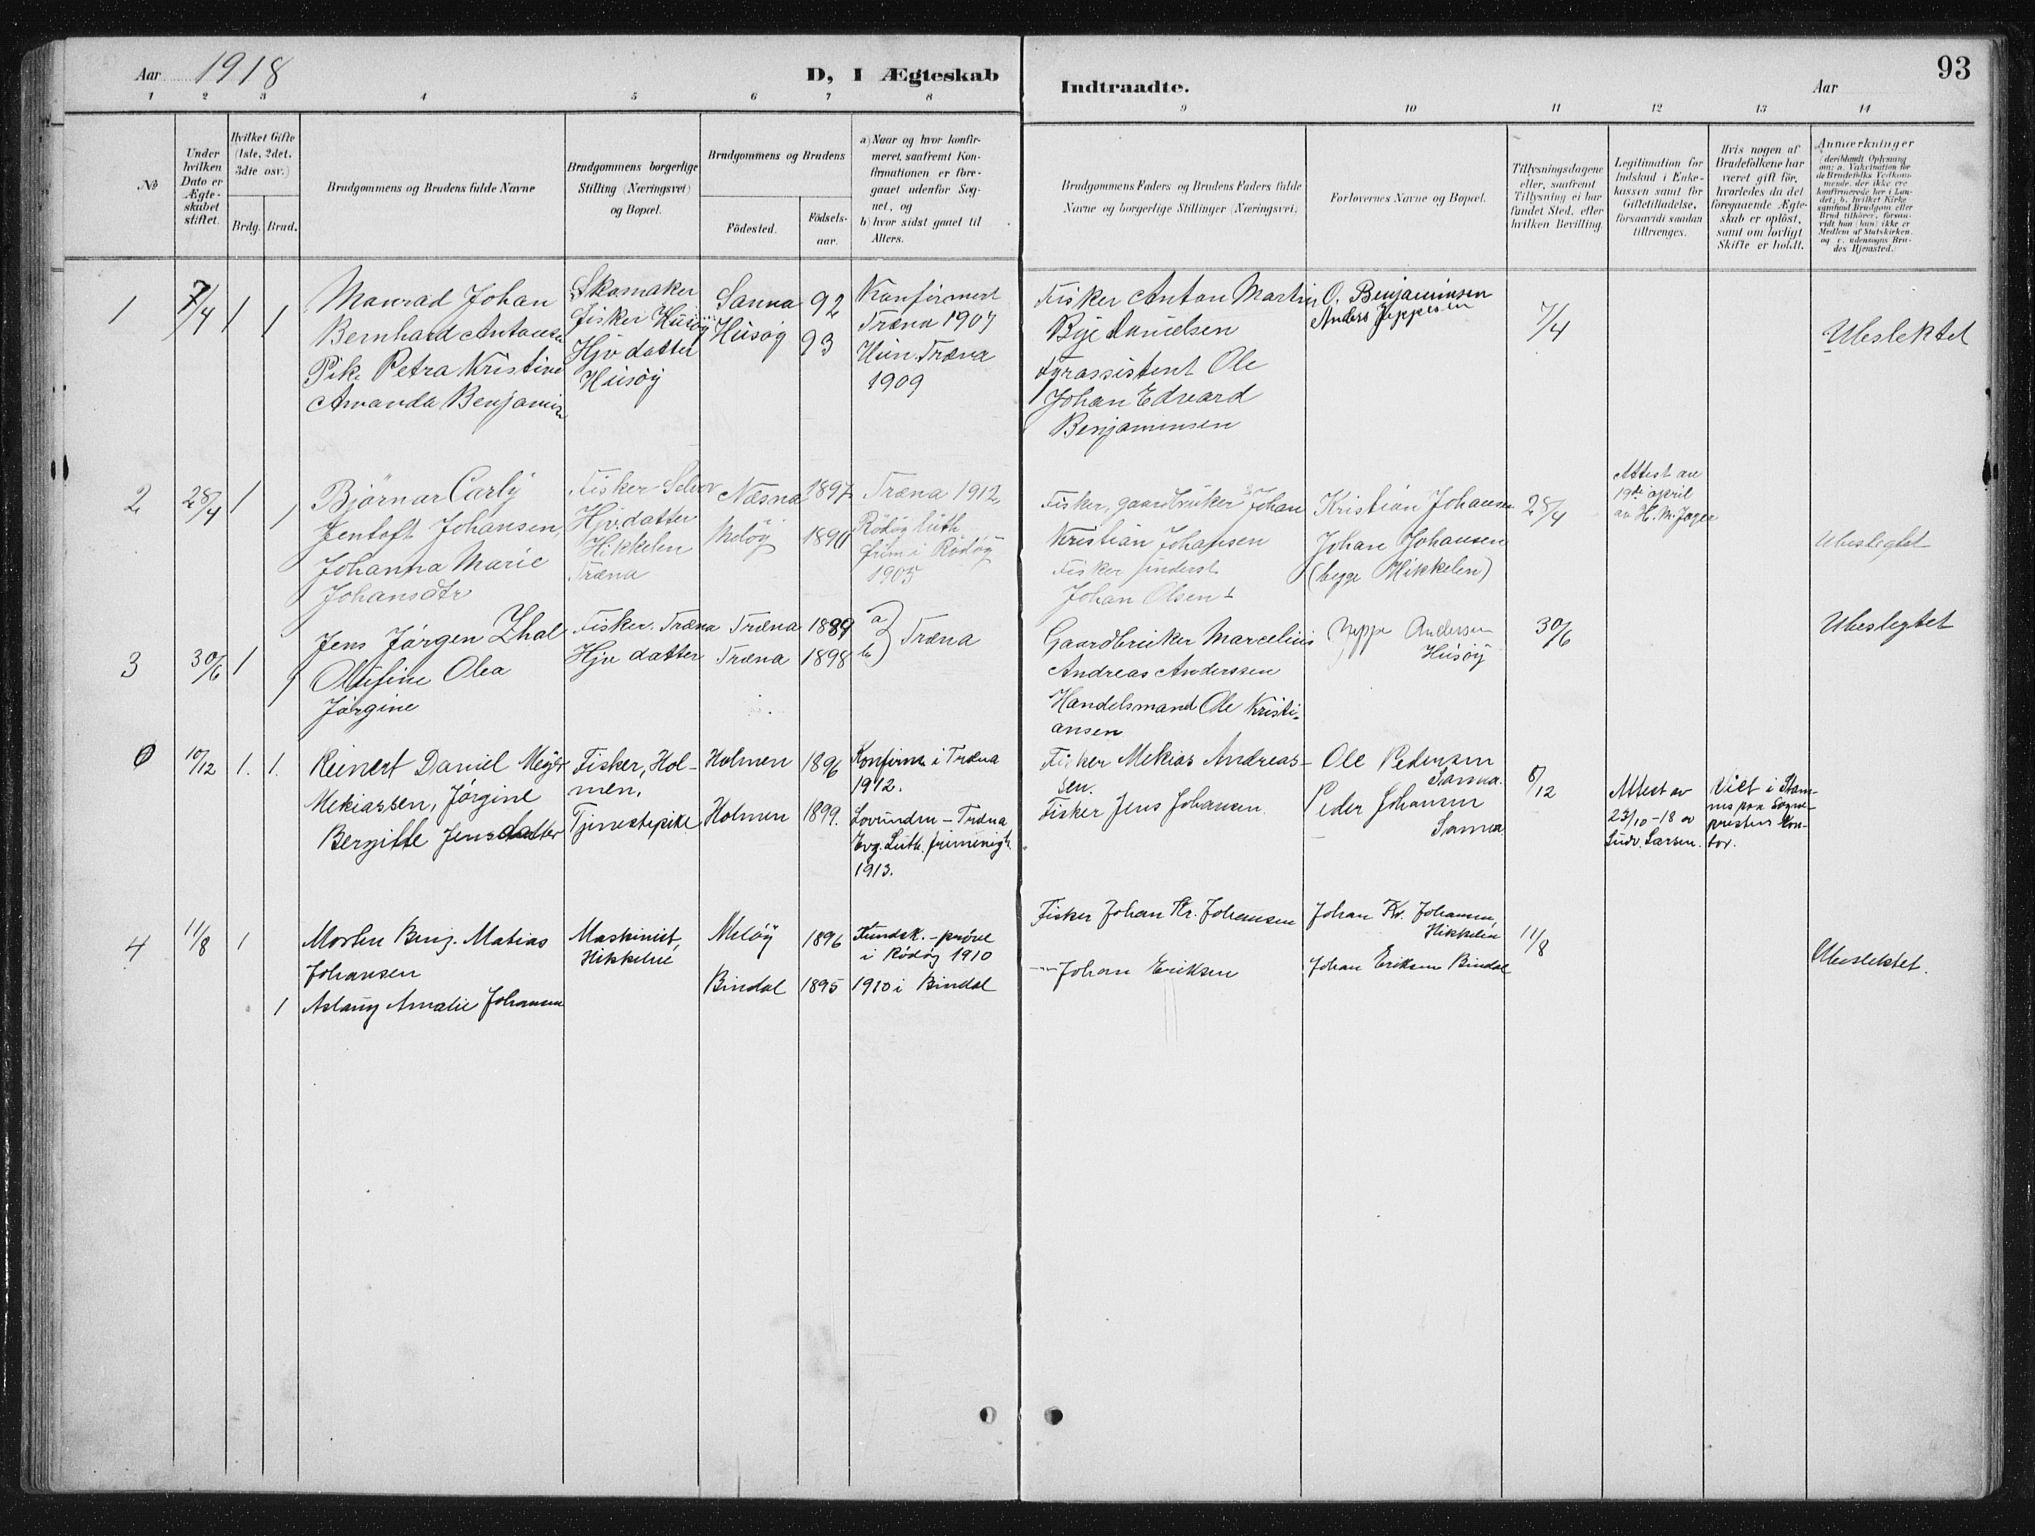 Aar 1918
D, I Ægteskab
Indtraadte.
Aar
93
1 2 3 4 5 6 7 8 9 10 11 12 13 14
No
Under
hvilken
Dato er
Ægte-
skabet
stiftet.
Hvilket Gifte
(1ste, 2det,
3die osv.)
Brdg. Brud.
Brudgommens og Brudens fulde Navne
Brudgommens borgerlige
Stilling (Næringsvei)
og Bopæl.
Brudgommens og Brudens
Födested.
Födsels-
aar.
a) Naar og hvor konfir-
meret, saafremt Kon-
firmationen er fore-
gaaet udenfor Sog-
net, og
b) hvor sidst gaaet til
Alters.
Brudgommens Faders og Brudens Faders fulde
Navne og borgerlige Stillinger (Næringsvei)
Forlovernes Navne og Bopæl.
Tillysningsdagene
eller, saafremt
Tillysning ei har
fundet Sted, efter
hvilken Bevilling.
Legitimation for
Indskud i Enke-
kassen samt for
Giftetilladelse,
forsaavidt saadan
tiltrænges.
Hvis nogen af
Brudefolkene har
været gift för,
hvorledes da det
foregaaende Ægte-
skab er oplöst,
samt om lovligt
Skifte er holdt.
Anmærkninger
(deriblandt Oplysning
om: a. Vakcination for
de Brudefolks Vedkom-
mende, der ikke ere
konfirmerede her i Lan-
det; b. hvilket Kirke-
samfund Brudgom eller
Brud tilhörer, forsaa-
vidt han (hun) ikke er
Medlem af Statskirken.
og c. udensogns Bru-
des Hjemsted.
1 7/4 1 1
Monrad Johan
Bernhard Antonsen
Pike Petra Kristine
Amanda Benjamin
Skomaker
fisker Husöy
Hjv datter
Husöy
Sanna 92
Husöy 93
Konfirmert
Træna 1907
Hun. Træna
1909
Fisker Anton Martin
Bye Danielsen
fyrassistent Ole
Johan Edvard
Benjaminsen
O. Benjaminsen
Anders Jeppesen
7/4
Ubeslektet
2 28/4 1 1
Björnar Carly
Jentoft Johansen,
Johanna Marie
Johansdtr
Fisker Selvær
Hjv. datter
Hikkelen
Træna
Næsna 1897
Melöy 1890
Træna 1912
Rödöy luth
frim i Rödöy
1905
Fisker, gaardbruker Johan
Kristian Johansen
Fisker
Johan Olsen
Kristian Johansen
Johan Johansen
(begge Hikkelen)
28/4
Attest av
19de april
av H. M. Jager
Ubeslegtet
3 30/6 1 1
Jens Jörgen Zhal
Olufine Olea
Jörgine
Fisker. Træna
Hjv datter
Træna 1889
Træna 1898
a
b) Træna
Gaardbruker Marcelius
Andreas Anderssen
Handelsmand Ole Kristi-
ansen
Jeppe Andersen
Husöy
30/6
Ubeslegtet
0 10/12 1. 1.
Reinert Daniel Meyer
Mekiassen, Jörgine
Bergitte Jensdatter
Fisker, Hol-
men,
Tjenestepike
Holmen 1896
Holmen 1899.
Konfirm i Træna
1912.
Lovunden – Træna
Evg. Luth. frimenigh.
1913.
Fisker Mekias Andreas-
sen.
Fisker Jens Johansen.
Ole Pedersen
Sanna.
Peder Johansen
Sanna
8/12
Attest av
23/10-18 av
Ludv. Larsen.
Viet i Stam-
nes paa Sogne-
prestens Kon-
tor.
4 11/8 1
Morten Benj. Matias
Johansen
1 Aslaug Amalie Johansen
Maskinist,
Hikkelne
Melöy 1896
Bindal 1895
Kundsk.-pröve
i Rödöy 1910
1910 i Bindal
Fisker Johan Kr. Johansen
-"- Johan Eriksen
Johan Kr. Johansen,
Hikkelen
Johan Eriksen Bindal
11/8
Ubeslektet.